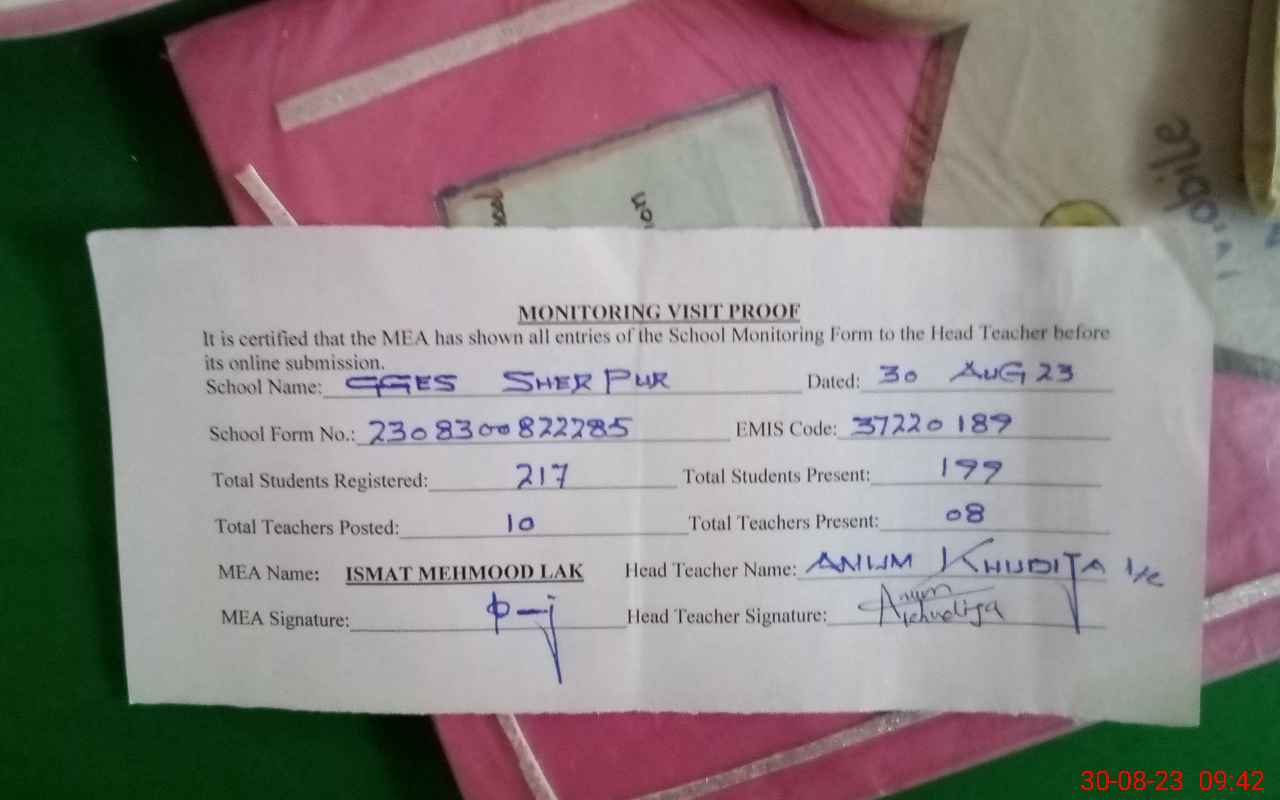 Mobile
on
MONITORING VISIT PROOF
It is certified that the MEA has shown all entries of the School Monitoring Form to the Head Teacher before
its online submission.
School Name: GGES SHER PUR Dated: 30 AUG 23
School Form No.: 2308300822285 EMIS Code: 37220189
Total Students Registered: 217 Total Students Present: 199
Total Teachers Posted: 10 Total Teachers Present: 08
MEA Name: ISMAT MEHMOOD LAK Head Teacher Name: ANUM KHUDIJA I/C
MEA Signature: Head Teacher Signature: Anum
Khudija
30-08-23 09:42